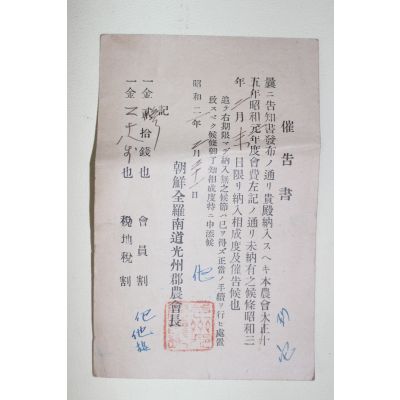 催告書
曩ニ告知書發布ノ通リ貴殿納入スヘキ本農會大正十
五年昭和元年度會費左記ノ通リ未納有之候條昭和三
年 月 日限リ納入相成度及催告候也
追テ右期限マデ納入無之候節ハ已ヲ得ズ正當ノ手續ヲ行ヒ處置
致スベク候條御了知相成度特ニ申添候
昭和二年 月 日
朝鮮全羅南道光州郡農會長
記
一金 拾錢也 會員割
一金 也 稅地稅割